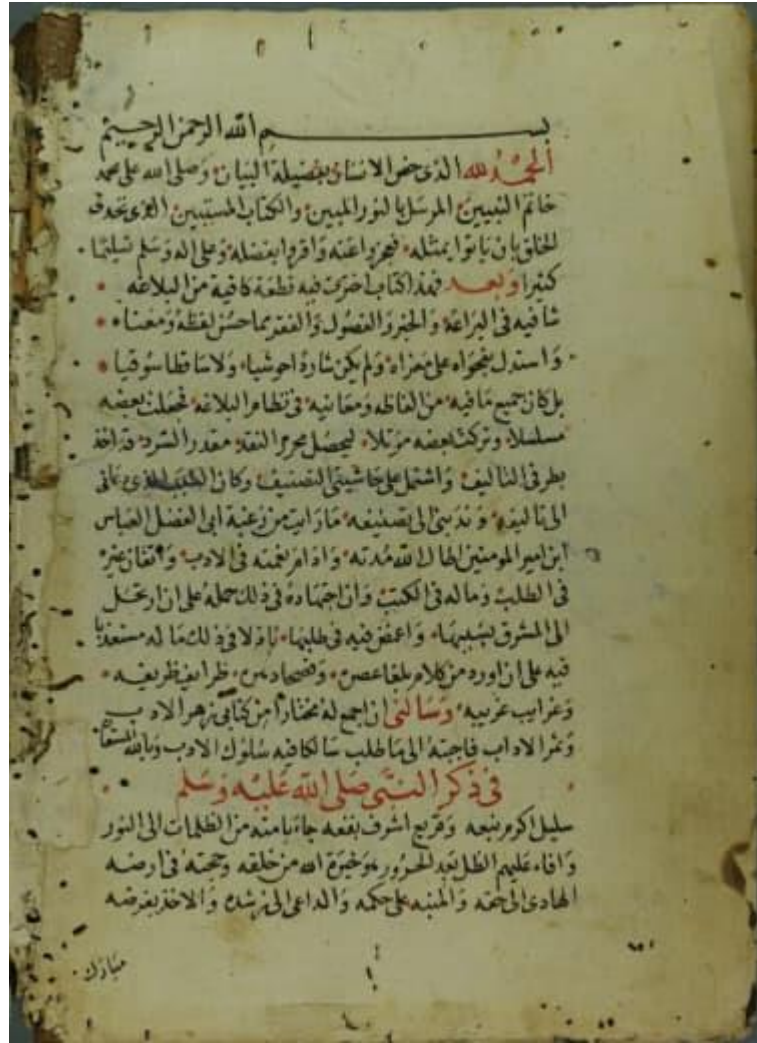 بسم الله الرحمن الرحيم
الحمد لله الذى خص الانسان بفضيلة البيان وصلى الله على محمد
خاتم النبيين المرسل بالنور المبين والكتاب المستبين الذى تحدى
الخلق بان ياتوا بمثله فعجزوا عنه واقروا بفضله وعلى اله وسلم تسليما
كثيرا وبعد فهذا كتاب اخترت فيه قطعة كافية من البلاغه
شافيه فى البراعة والخبر والفصول والفقر مما حسن لفظه ومعناه
واستدل بفحواه على مغزاه ولم يكن شاردا حوشيا ولا ساقطا سوقيا
بل كان جميع ما فيه من الفاظه ومعانيه فى نظام البلاغه فجعلت بعضه
مسلسلا وتركت بعضه مرسلا ليحصل محرر النقد مقدر السرد قد اخذ
بطرفى التاليف واشتمل على حاشيتى التصنيف وكان السبب الذى
الى تاليفه وندبنى الى تصنيفه ما رايت من رغبة ابى الفضل العباس
ابن امير المومنين اطال الله مدته وادام نعمته فى الادب وانفاق عمره
فى الطلب وماله فى الكتب وان اجتهاده فى ذلك حمله على ان ارتحل
الى المشرق بسببها واغمض فيه فى طلبها باذلا فى ذلك ماله مستعذبا
فيه على ان اورد من كلام بلغا عصره وفصحا دهره طرايف طريفه
وغرايب غريبه وسالنى ان اجمع له مختارا من كتابى زهر الادب
وثمر الاداب فاجبته الى ما طلب سالكا فيه سلوك الادب وبالله المستعان
فى ذكر النبى صلى الله عليه وسلم
سليل اكرم نبعه وقريع اشرف بقعه جاء بامته من الظلمات الى النور
وافاء عليهم الظل بعد الحرور وخيرة الله من خلقه وحجته فى ارضه
الهادى الى حقه والمنبه على حكمه والداعى الى رشده والاخذ بفرضه
مبارك